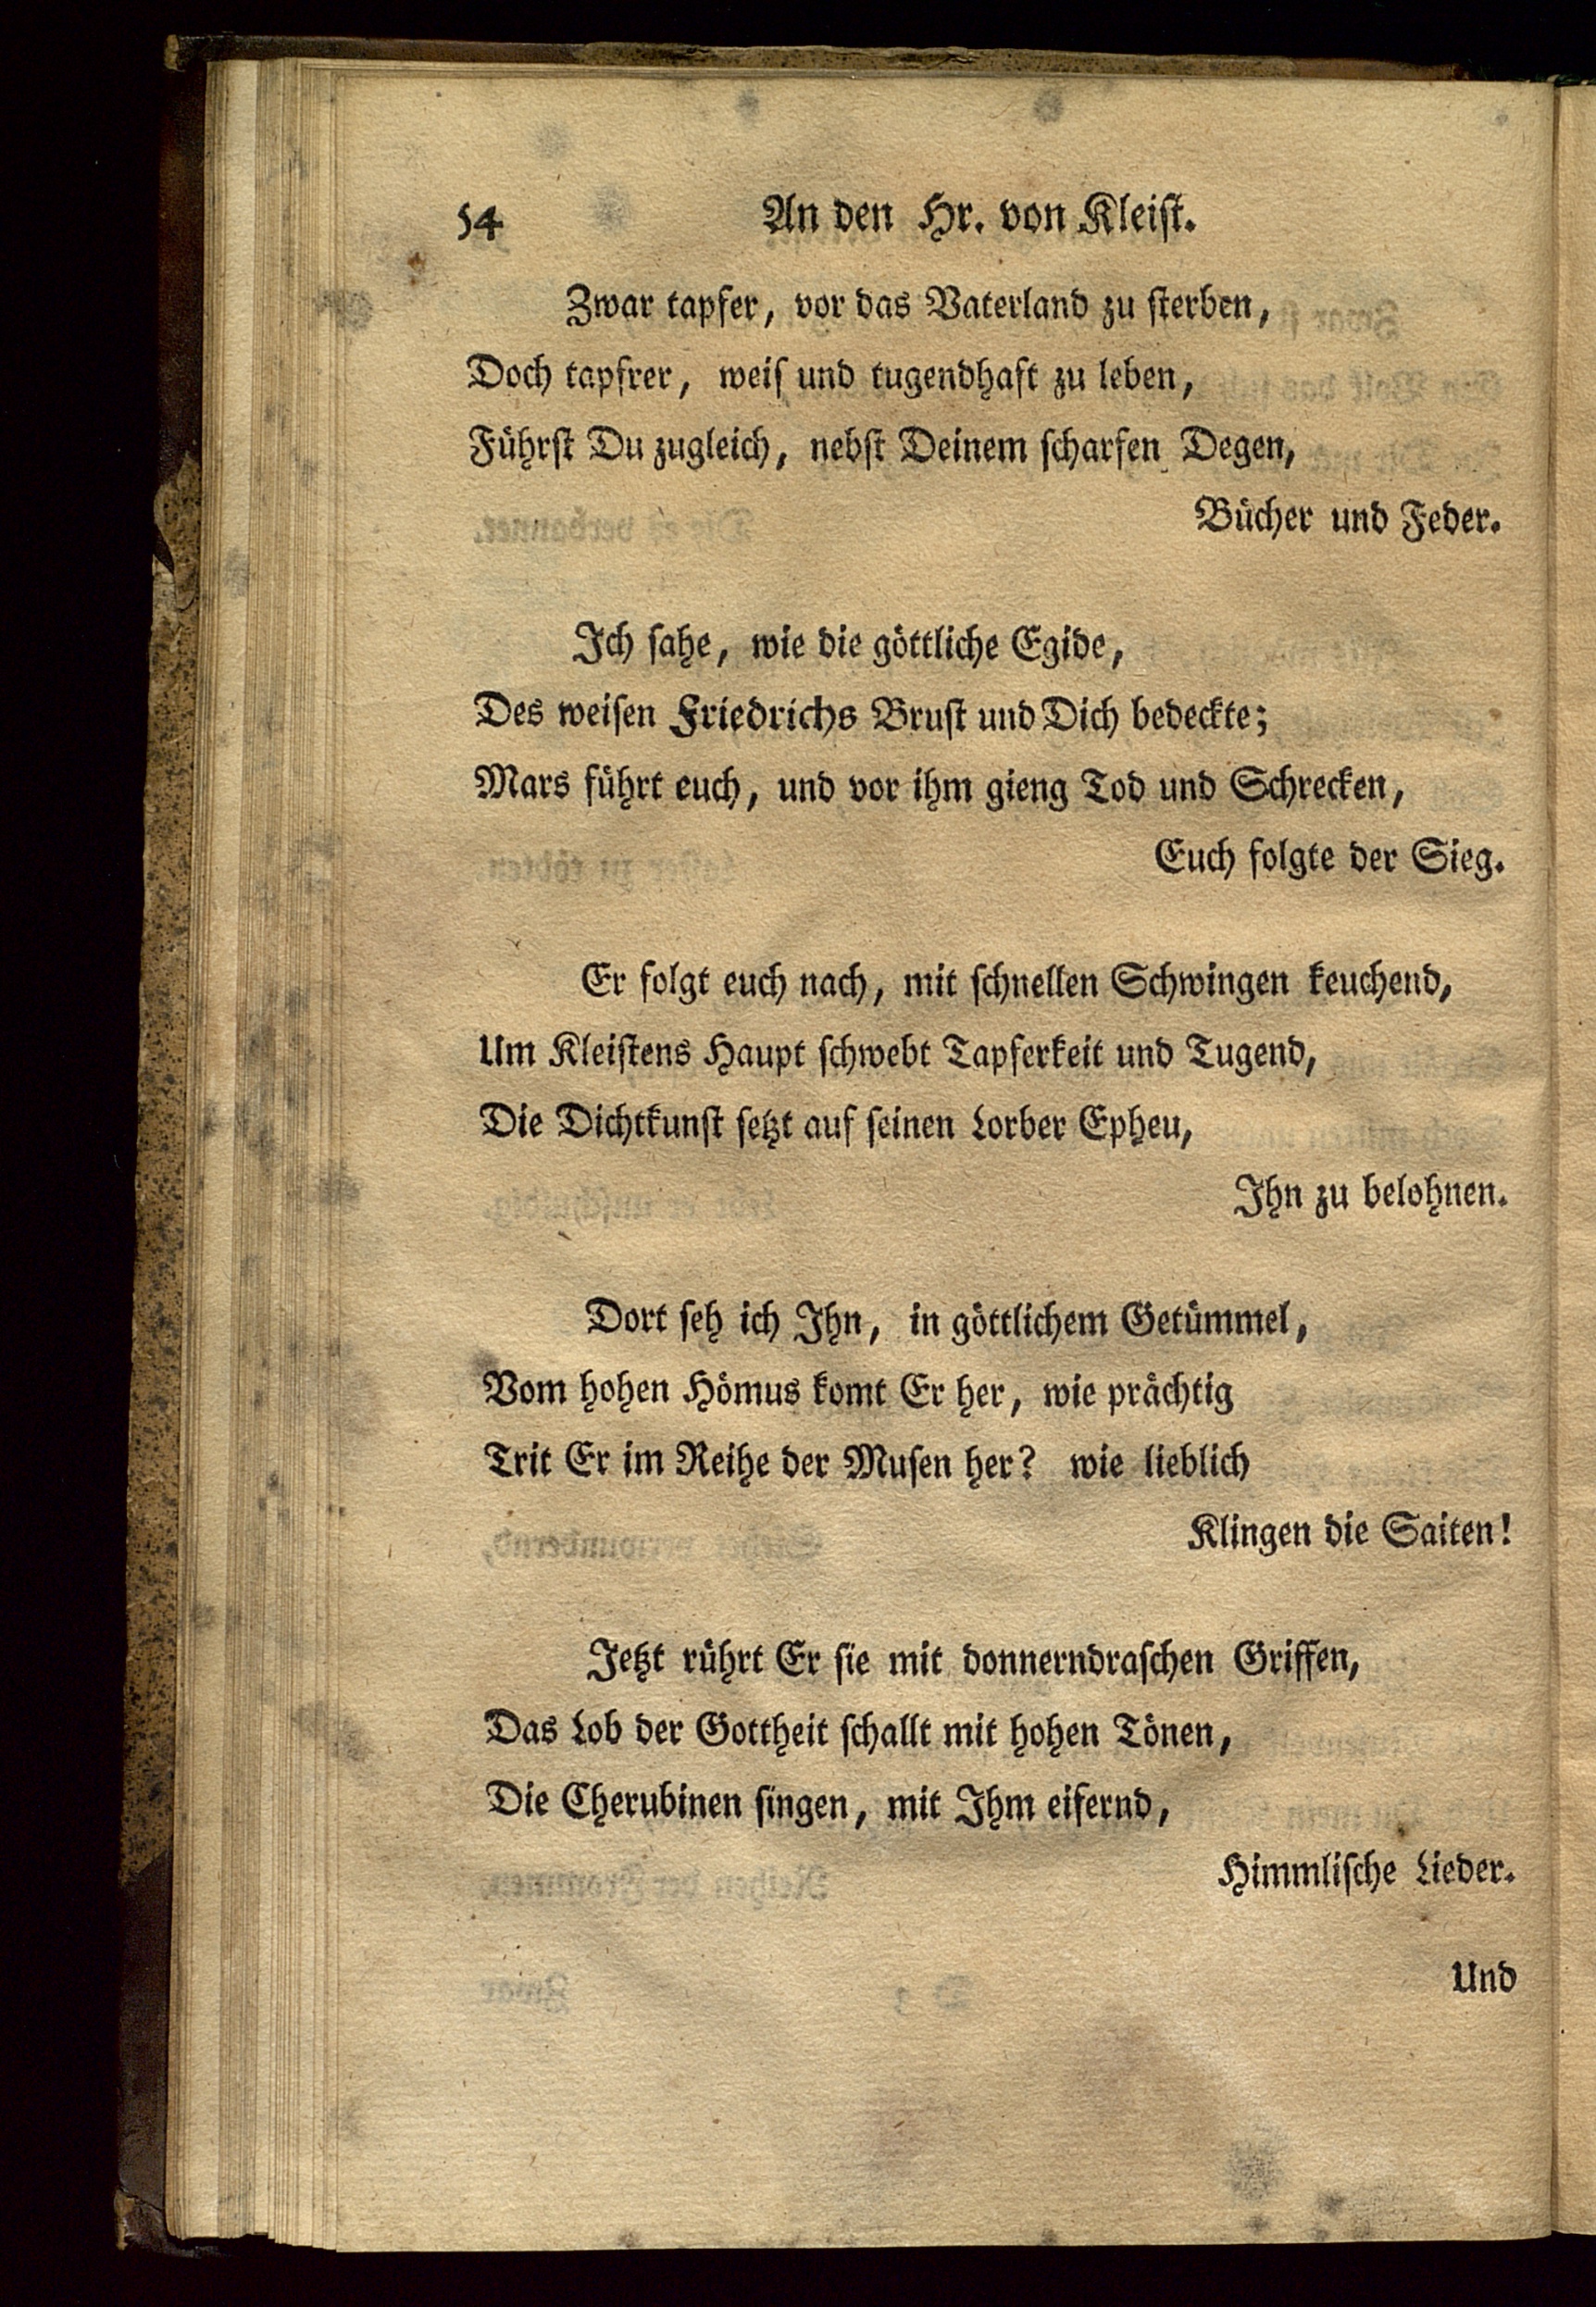 54 An den Hr. von Kleiſt.
Zwar tapfer, vor das Vaterland zu ſterben,
Doch tapfrer, weiſ und tugendhaft zu leben,
Führſt Du zugleich, nebſt Deinem ſcharfen Degen,
Bücher und Feder.
Ich ſahe, wie die göttliche Egide,
Des weiſen Friedrichs Bruſt und Dich bedeckte;
Mars führt euch, und vor ihm gieng Tod und Schrecken,
Euch folgte der Sieg.
Er folgt euch nach, mit ſchnellen Schwingen keuchend,
Um Kleiſtens Haupt ſchwebt Tapferkeit und Tugend,
Die Dichtkunſt ſetzt auf ſeinen Lorber Epheu,
Ihn zu belohnen.
Dort ſeh ich Ihn, in göttlichem Getümmel,
Vom hohen Hömus komt Er her, wie prächtig
Trit Er im Reihe der Muſen her? wie lieblich
Klingen die Saiten!
Jetzt rührt Er ſie mit donnerndraſchen Griffen,
Das Lob der Gottheit ſchallt mit hohen Tönen,
Die Cherubinen ſingen, mit Ihm eifernd,
Himmliſche Lieder.
Und